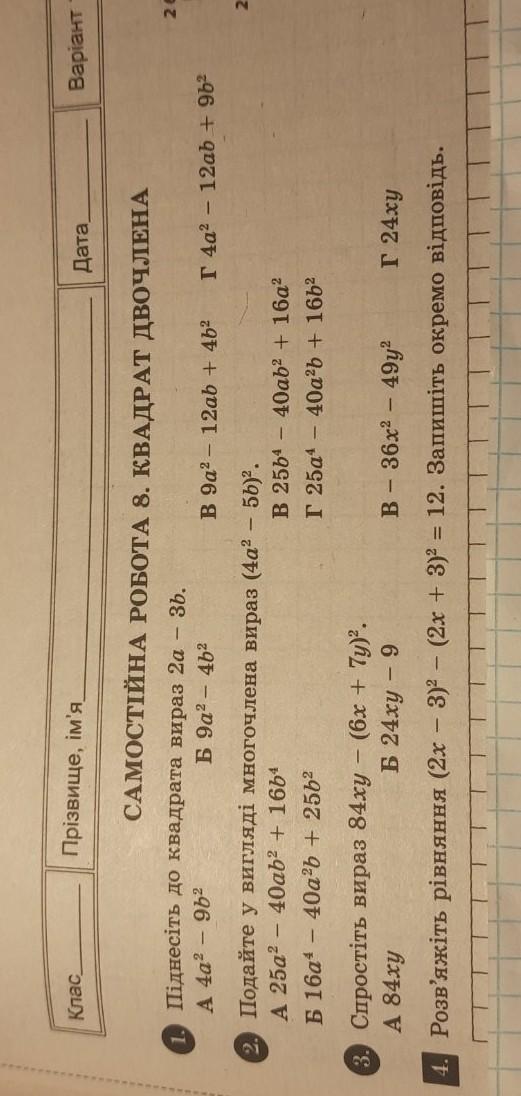 Клас Прізвище, ім'я Дата Варіант
САМОСТІЙНА РОБОТА 8. КВАДРАТ ДВОЧЛЕНА
1. Піднесіть до квадрата вираз 2a − 3b.
А 4a² − 9b² Б 9a² − 4b² В 9a² − 12ab + 4b² Г 4a² − 12ab + 9b²
2. Подайте у вигляді многочлена вираз (4a² − 5b)².
А 25a² − 40ab² + 16b⁴ В 25b⁴ − 40ab² + 16a²
Б 16a⁴ − 40a²b + 25b² Г 25a⁴ − 40a²b + 16b²
3. Спростіть вираз 84xy − (6x + 7y)².
А 84xy Б 24xy − 9 В − 36x² − 49y² Г 24xy
4. Розв'яжіть рівняння (2x − 3)² − (2x + 3)² = 12. Запишіть окремо відповідь.